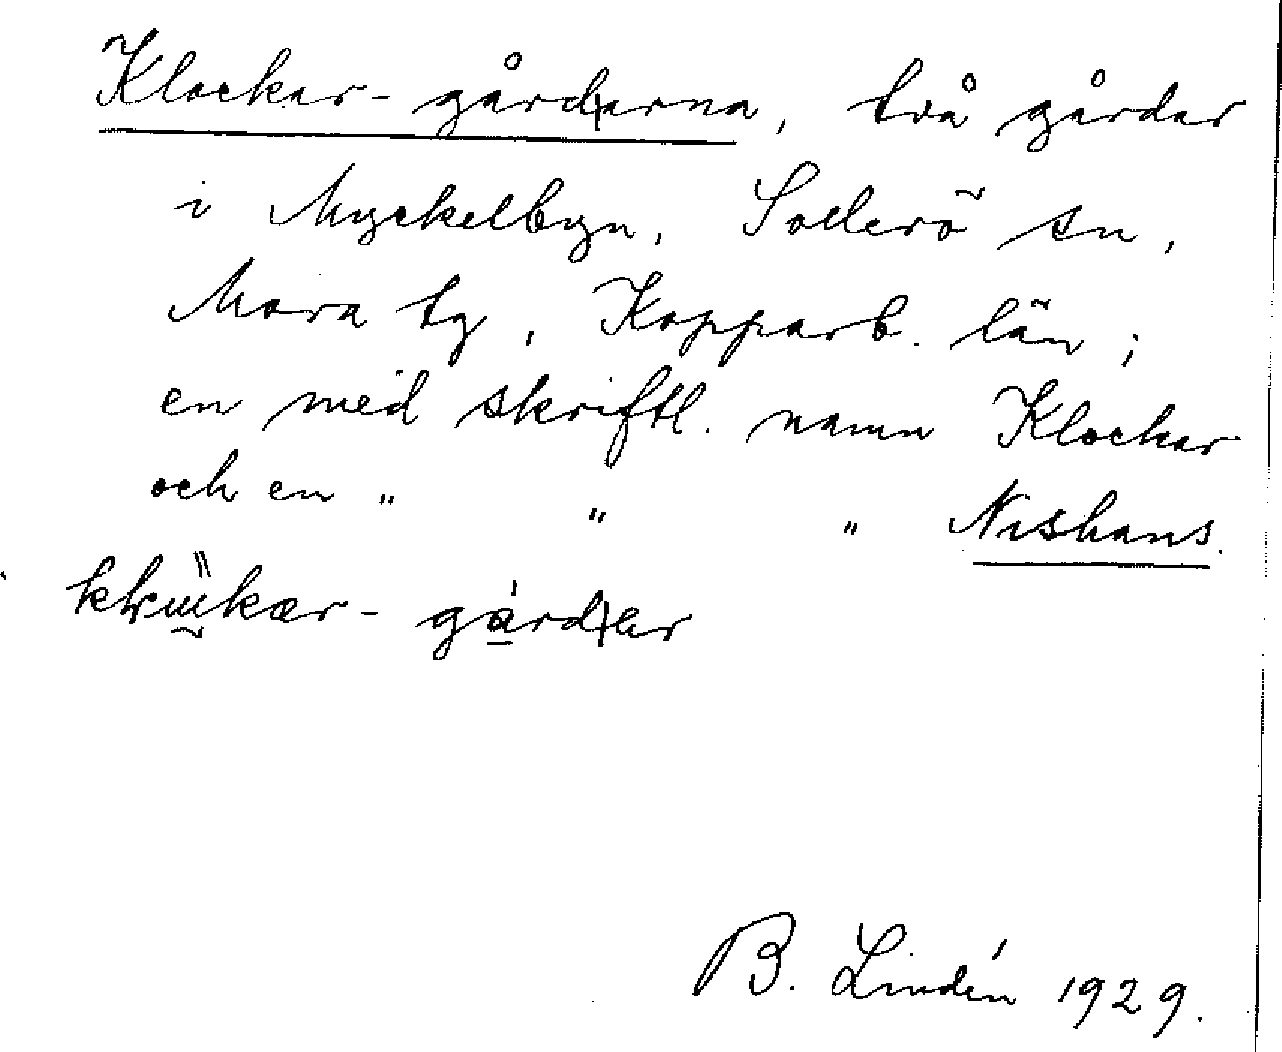 Klockar-gård|arna, två gårdar
i Myckelbyn, Sollerö sn,
Mora tg, Kopparb. län;
en med skriftl. namn Klockar
och en " " " Nishans.
gárd|er
B. Lindén 1929.